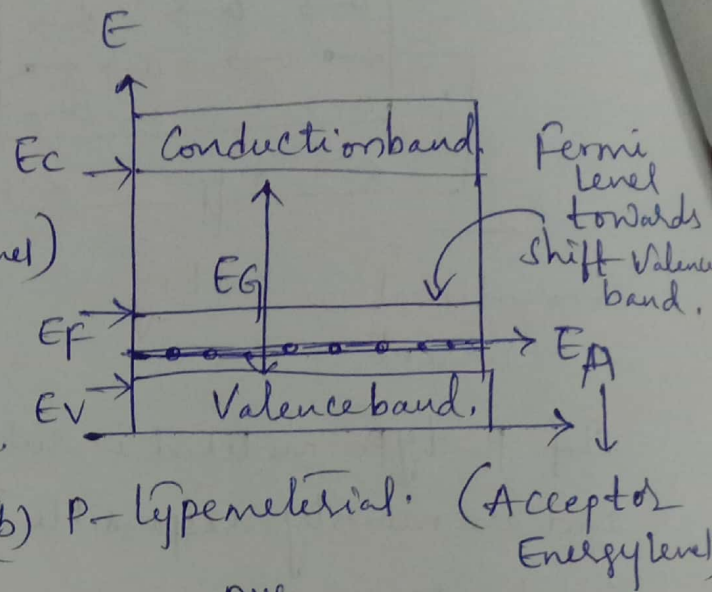 E
Conduction band
EC
Fermi
level
towards
shift Valence
band.
nel)
EG
EF
EA
EV
Valence band.
b) P-type meterial. (Acceptor
Energy level